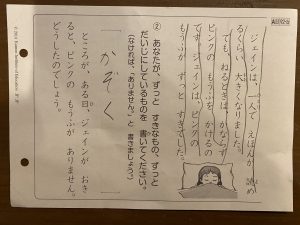 ジェインは、一人で えほんが 読め
るくらい 大きくなりました。
でも、ねるときは かならず
ピンクの もうふを かけるの
です。ジェインは、ピンクの
もうふが ずっと すきでした。
② あなたが、ずっと すきなもの、ずっと
だいじにしているものを 書いてください。
(なければ、「ありません。」と 書きましょう。)
かぞく
ところが、ある日、ジェインが おき
ると、ピンクの もうふが ありません。
どうしたのでしょう。